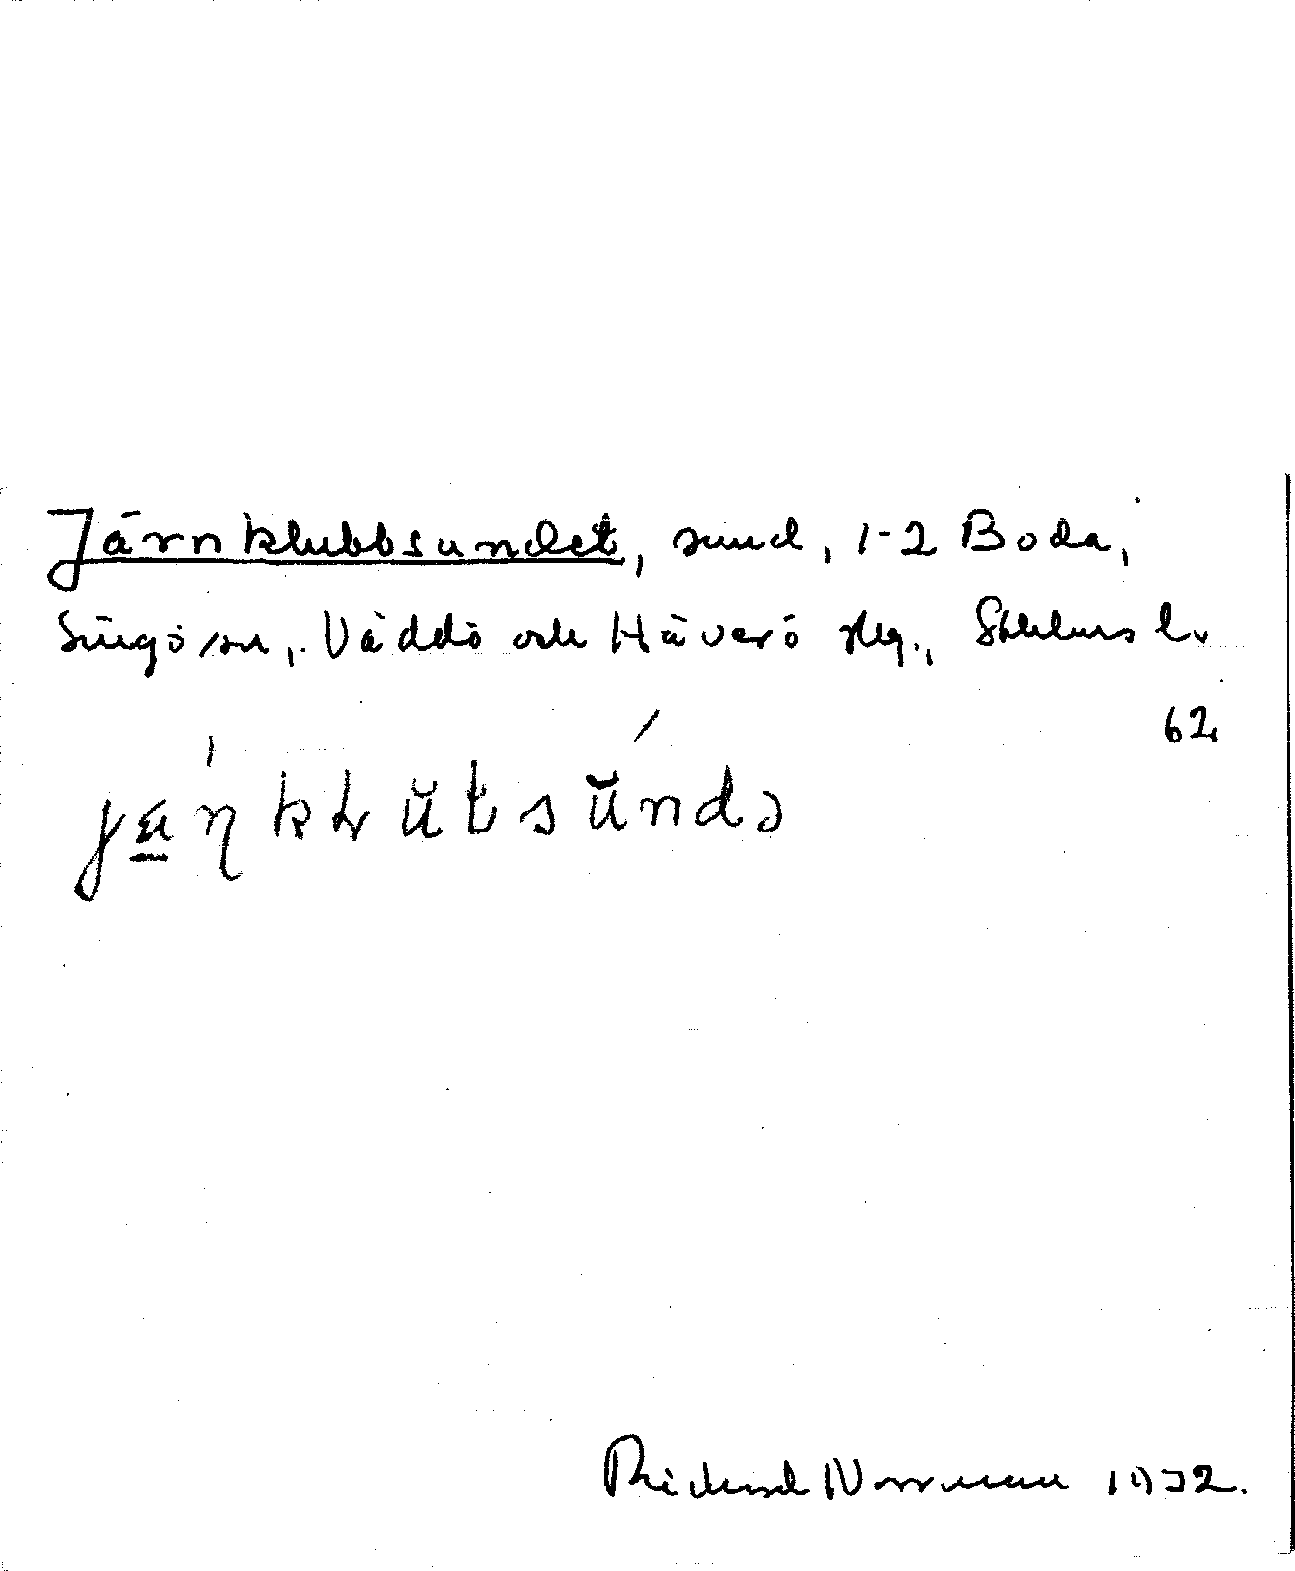 Järnklubbsundet, sund, 1-2 Boda,
Singö sn, Väddö och Häverö skg., Sthlms l.
62
Rickard Norrman 1932.